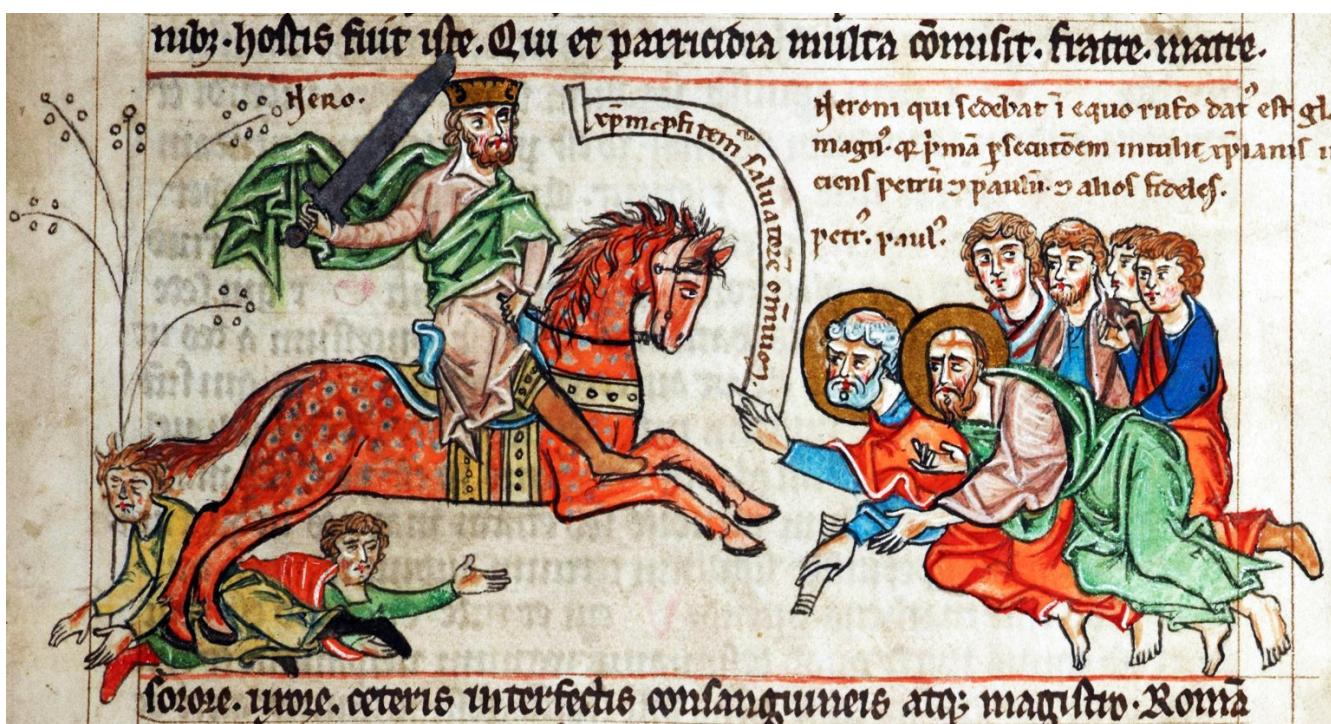 nibꝫ · hostis fuit iste. Qui et parricidia multa cōmisit. fratre. matre.
Nero.
xp̄m ꝯfitem͛ saluatorē om̄iuꝝ.
Neroni qui sedebat ī equo rufo dat᷒ est gl
magn᷒. qr p̄mā ꝑsecutōem intulit xp̄ianis in
ciens petrū ⁊ paulū. ⁊ alios fideles.
petr᷒. paul᷒.
sorore. uxore. ceteris interfectis consanguineis atqꝫ magistro. Romā